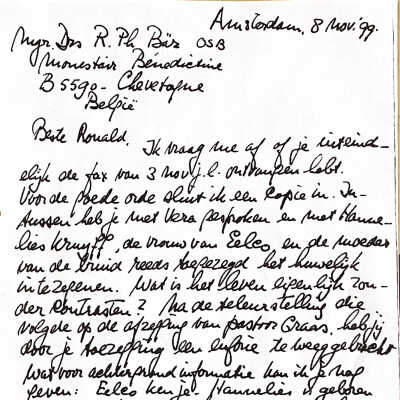 Amsterdam, 8 nov. '99.
Myr. Drs R. Ph. Bär OSB
Monastair Bénédictine
B 5590 - Chevetogne
België
Beste Ronald,
Ik vraag me af of je inteind-
elijk de fax van 3 nov j.l. ontvangen hebt.
Voor de goede orde sluit ik een copie in. In-
tussen heb je met Vera gesproken en met Hanne-
lies Kruyff, de vrouw van Eelco, en de moeder
van de bruid reeds toegezegd het huwelijk
in te zegenen. Wat is het leven eigenlijk zon-
der contrasten? Na de teleurstelling die
volgde op de afzegging van pastor Graas, heb jij
door je toezegging een euforie te weeg gebracht
Wat voor achtergrond informatie kan ik je nog
geven: Eelco ken je. Hannelies is geboren